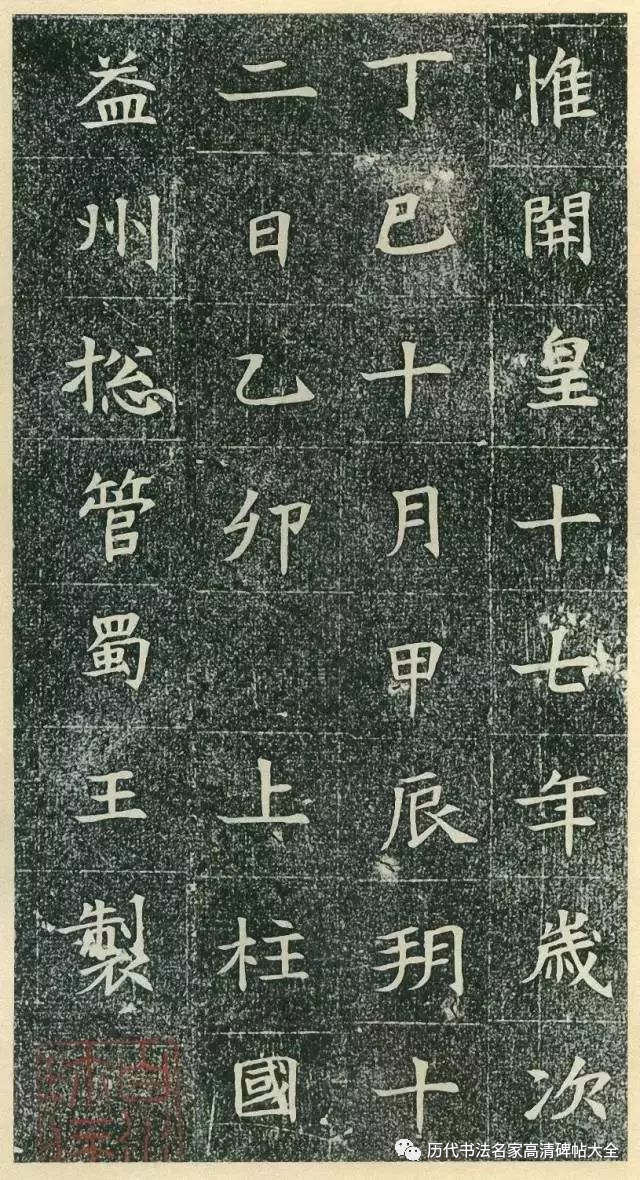 惟開皇十七年歲次
丁巳十月甲辰玥十
二日乙卯上柱國
益州捴管蜀王製
历代书法名家高清碑帖大全